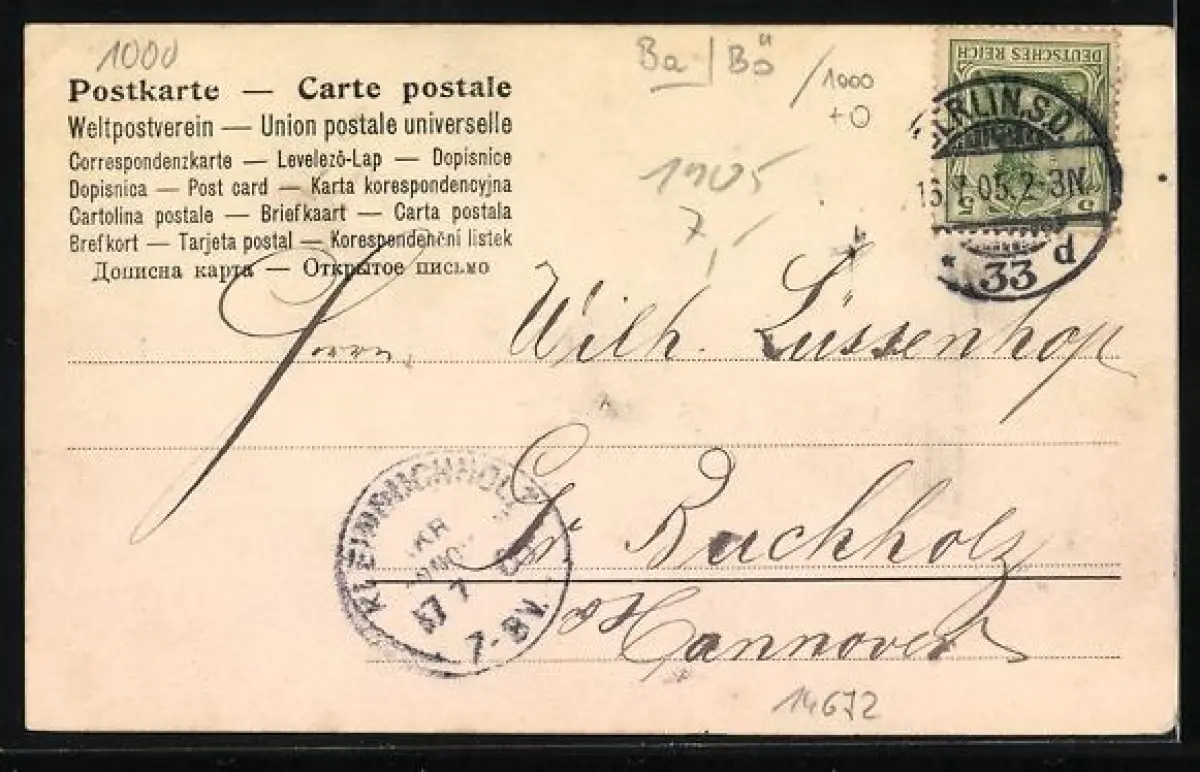 1000
Postkarte — Carte postale
Weltpostverein — Union postale universelle
Correspondenzkarte — Levelező-Lap — Dopisnice
Dopisnica — Post card — Karta korespondencyjna
Cartolina postale — Briefkaart — Carta postala
Brefkort — Tarjeta postal — Korespondenční listek
Дописна карта — Открытое письмо
Ba / Bö
/ 1000
+0
1905
7
DEUTSCHES REICH
5 5
BERLIN.S.O.
16.7.05.2-3N.
* 33 d
Herrn Wilh. Lüssenhop
Gr. Buchholz
Hannover
KLEINBUCHHOLZ
17 7
7-8V.
14672